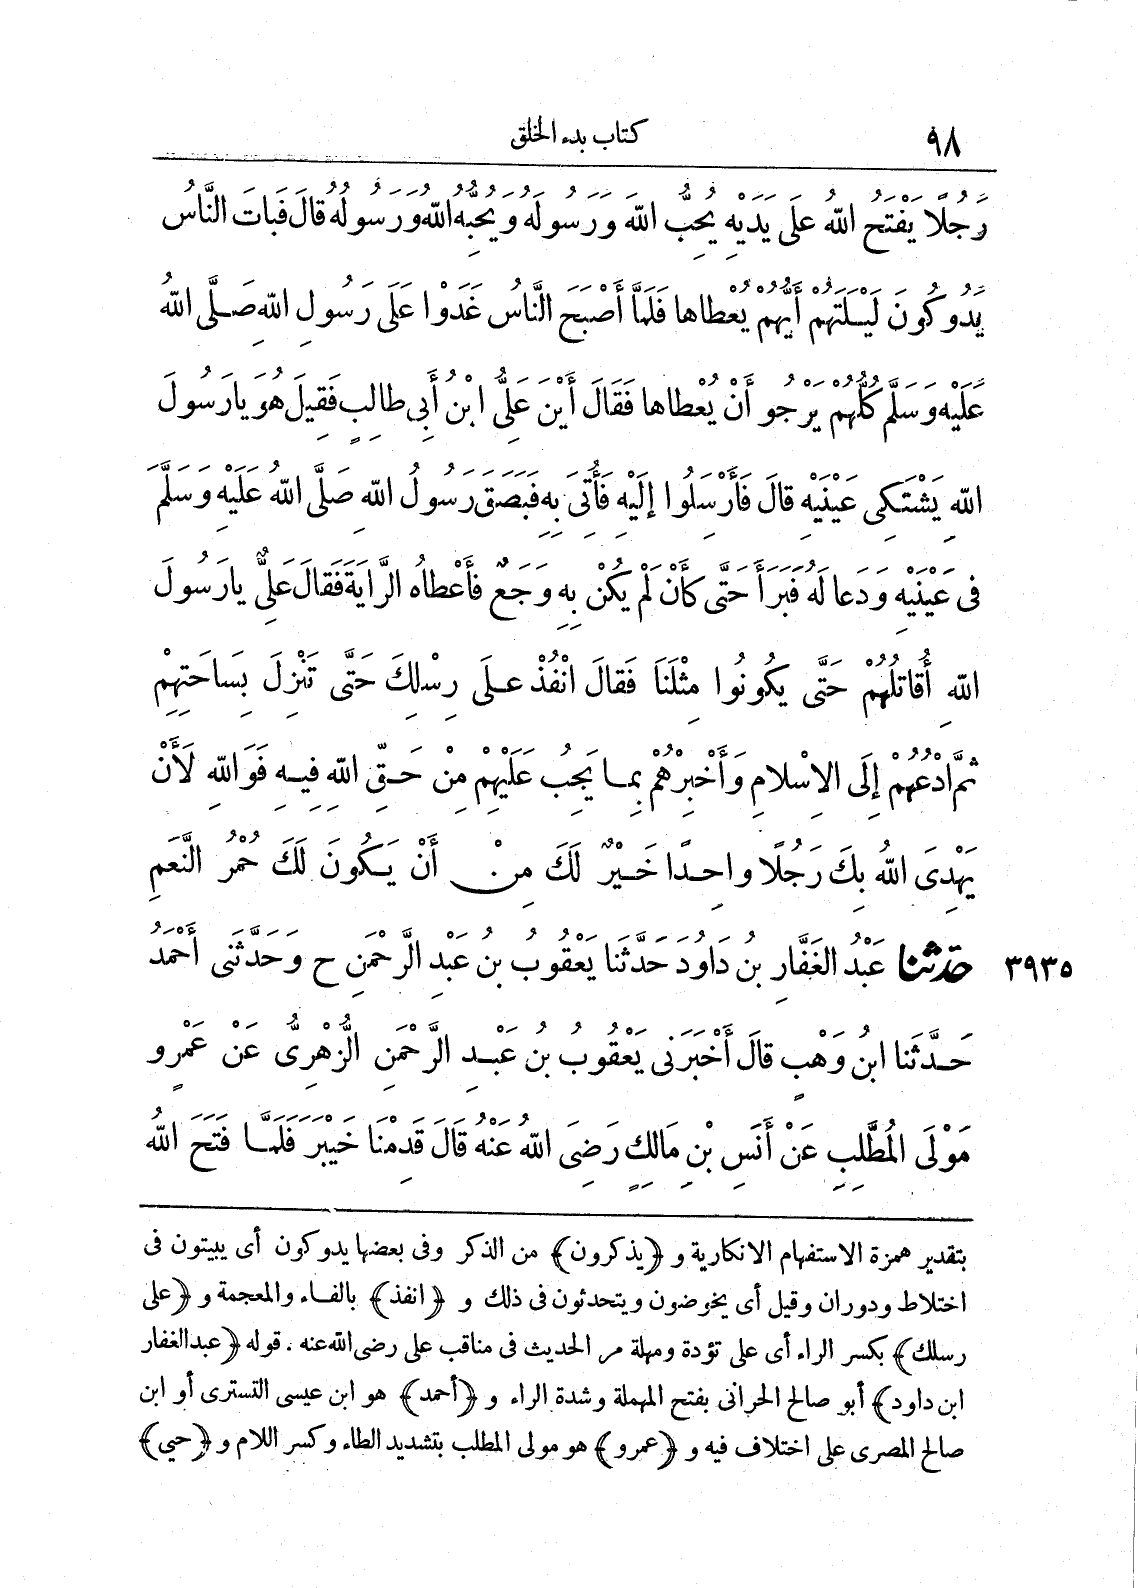 ٩٨
كتاب بدء الخلق
رَجُلًا يَفْتَحُ اللهُ عَلَى يَدَيْهِ يُحِبُّ اللهَ وَرَسُولَهُ وَيُحِبُّهُ اللهُ وَرَسُولُهُ قَالَ فَبَاتَ النَّاسُ
يَدُوكُونَ لَيْلَتَهُمْ أَيُّهُمْ يُعْطَاهَا فَلَمَّا أَصْبَحَ النَّاسُ غَدَوْا عَلَى رَسُولِ اللهِ صَلَّى اللهُ
عَلَيْهِ وَسَلَّمَ كُلُّهُمْ يَرْجُو أَنْ يُعْطاها فَقَالَ أَيْنَ عَلِىُّ ابْنُ أَبِى طالِبٍ فَقِيلَ هُوَ يا رَسُولَ
اللهِ يَشْتَكِى عَيْنَيْهِ قالَ فَأَرْسَلُوا إِلَيْهِ فَأُتِىَ بِهِ فَبَصَقَ رَسُولُ اللهِ صَلَّى اللهُ عَلَيْهِ وَسَلَّمَ
فى عَيْنَيْهِ وَدَعا لَهُ فَبَرَأَ حَتَّى كَأَنْ لَمْ يَكُنْ بِهِ وَجَعٌ فَأَعْطاهُ الرَّايَةَ فَقالَ عَلِىٌّ يا رَسُولَ
اللهِ أُقَاتِلُهُمْ حَتَّى يَكُونُوا مِثْلَنَا فَقالَ انْفُذْ عَلَى رِسْلِكَ حَتَّى تَنْزِلَ بِسَاحَتِهِمْ
ثُمَّ ادْعُهُمْ إِلَى الإِسْلامِ وَأَخْبِرْهُمْ بِما يَجِبُ عَلَيْهِمْ مِنْ حَقِّ اللهِ فِيهِ فَوَاللهِ لَأَنْ
يَهْدِىَ اللهُ بِكَ رَجُلًا واحِدًا خَيْرٌ لَكَ مِنْ أَنْ يَكُونَ لَكَ حُمْرُ النَّعَمِ
٣٩٣٥ حدثنا عَبْدُ الغَفَّارِ بنُ دَاوُدَ حَدَّثَنا يَعْقُوبُ بنُ عَبْدِ الرَّحْمَنِ ح وَحَدَّثَنى أَحْمَدُ
حَدَّثَنا ابنُ وَهْبٍ قالَ أَخْبَرَنى يَعْقُوبُ بنُ عَبْدِ الرَّحْمَنِ الزُّهْرِىُّ عَنْ عَمْرٍو
مَوْلَى المُطَّلِبِ عَنْ أَنَسِ بْنِ مَالِكٍ رَضِىَ اللهُ عَنْهُ قَالَ قَدِمْنَا خَيْبَرَ فَلَمَّا فَتَحَ اللهُ
بتقدير همزة الاستفهام الانكارية و ﴿يذكرون﴾ من الذكر وفى بعضها يدوكون أى يبيتون فى
اختلاط ودوران وقيل أى يخوضون ويتحدثون فى ذلك و ﴿انفذ﴾ بالفاء والمعجمة و ﴿على
رسلك﴾ بكسر الراء أى على تؤدة ومهلة مر الحديث فى مناقب على رضى الله عنه . قوله ﴿عبد الغفار
ابن داود﴾ أبو صالح الحرانى بفتح المهملة وشدة الراء و ﴿أحمد﴾ هو ابن عيسى التسترى أو ابن
صالح المصرى على اختلاف فيه و ﴿عمرو﴾ هو مولى المطلب بتشديد الطاء وكسر اللام و ﴿حيي﴾